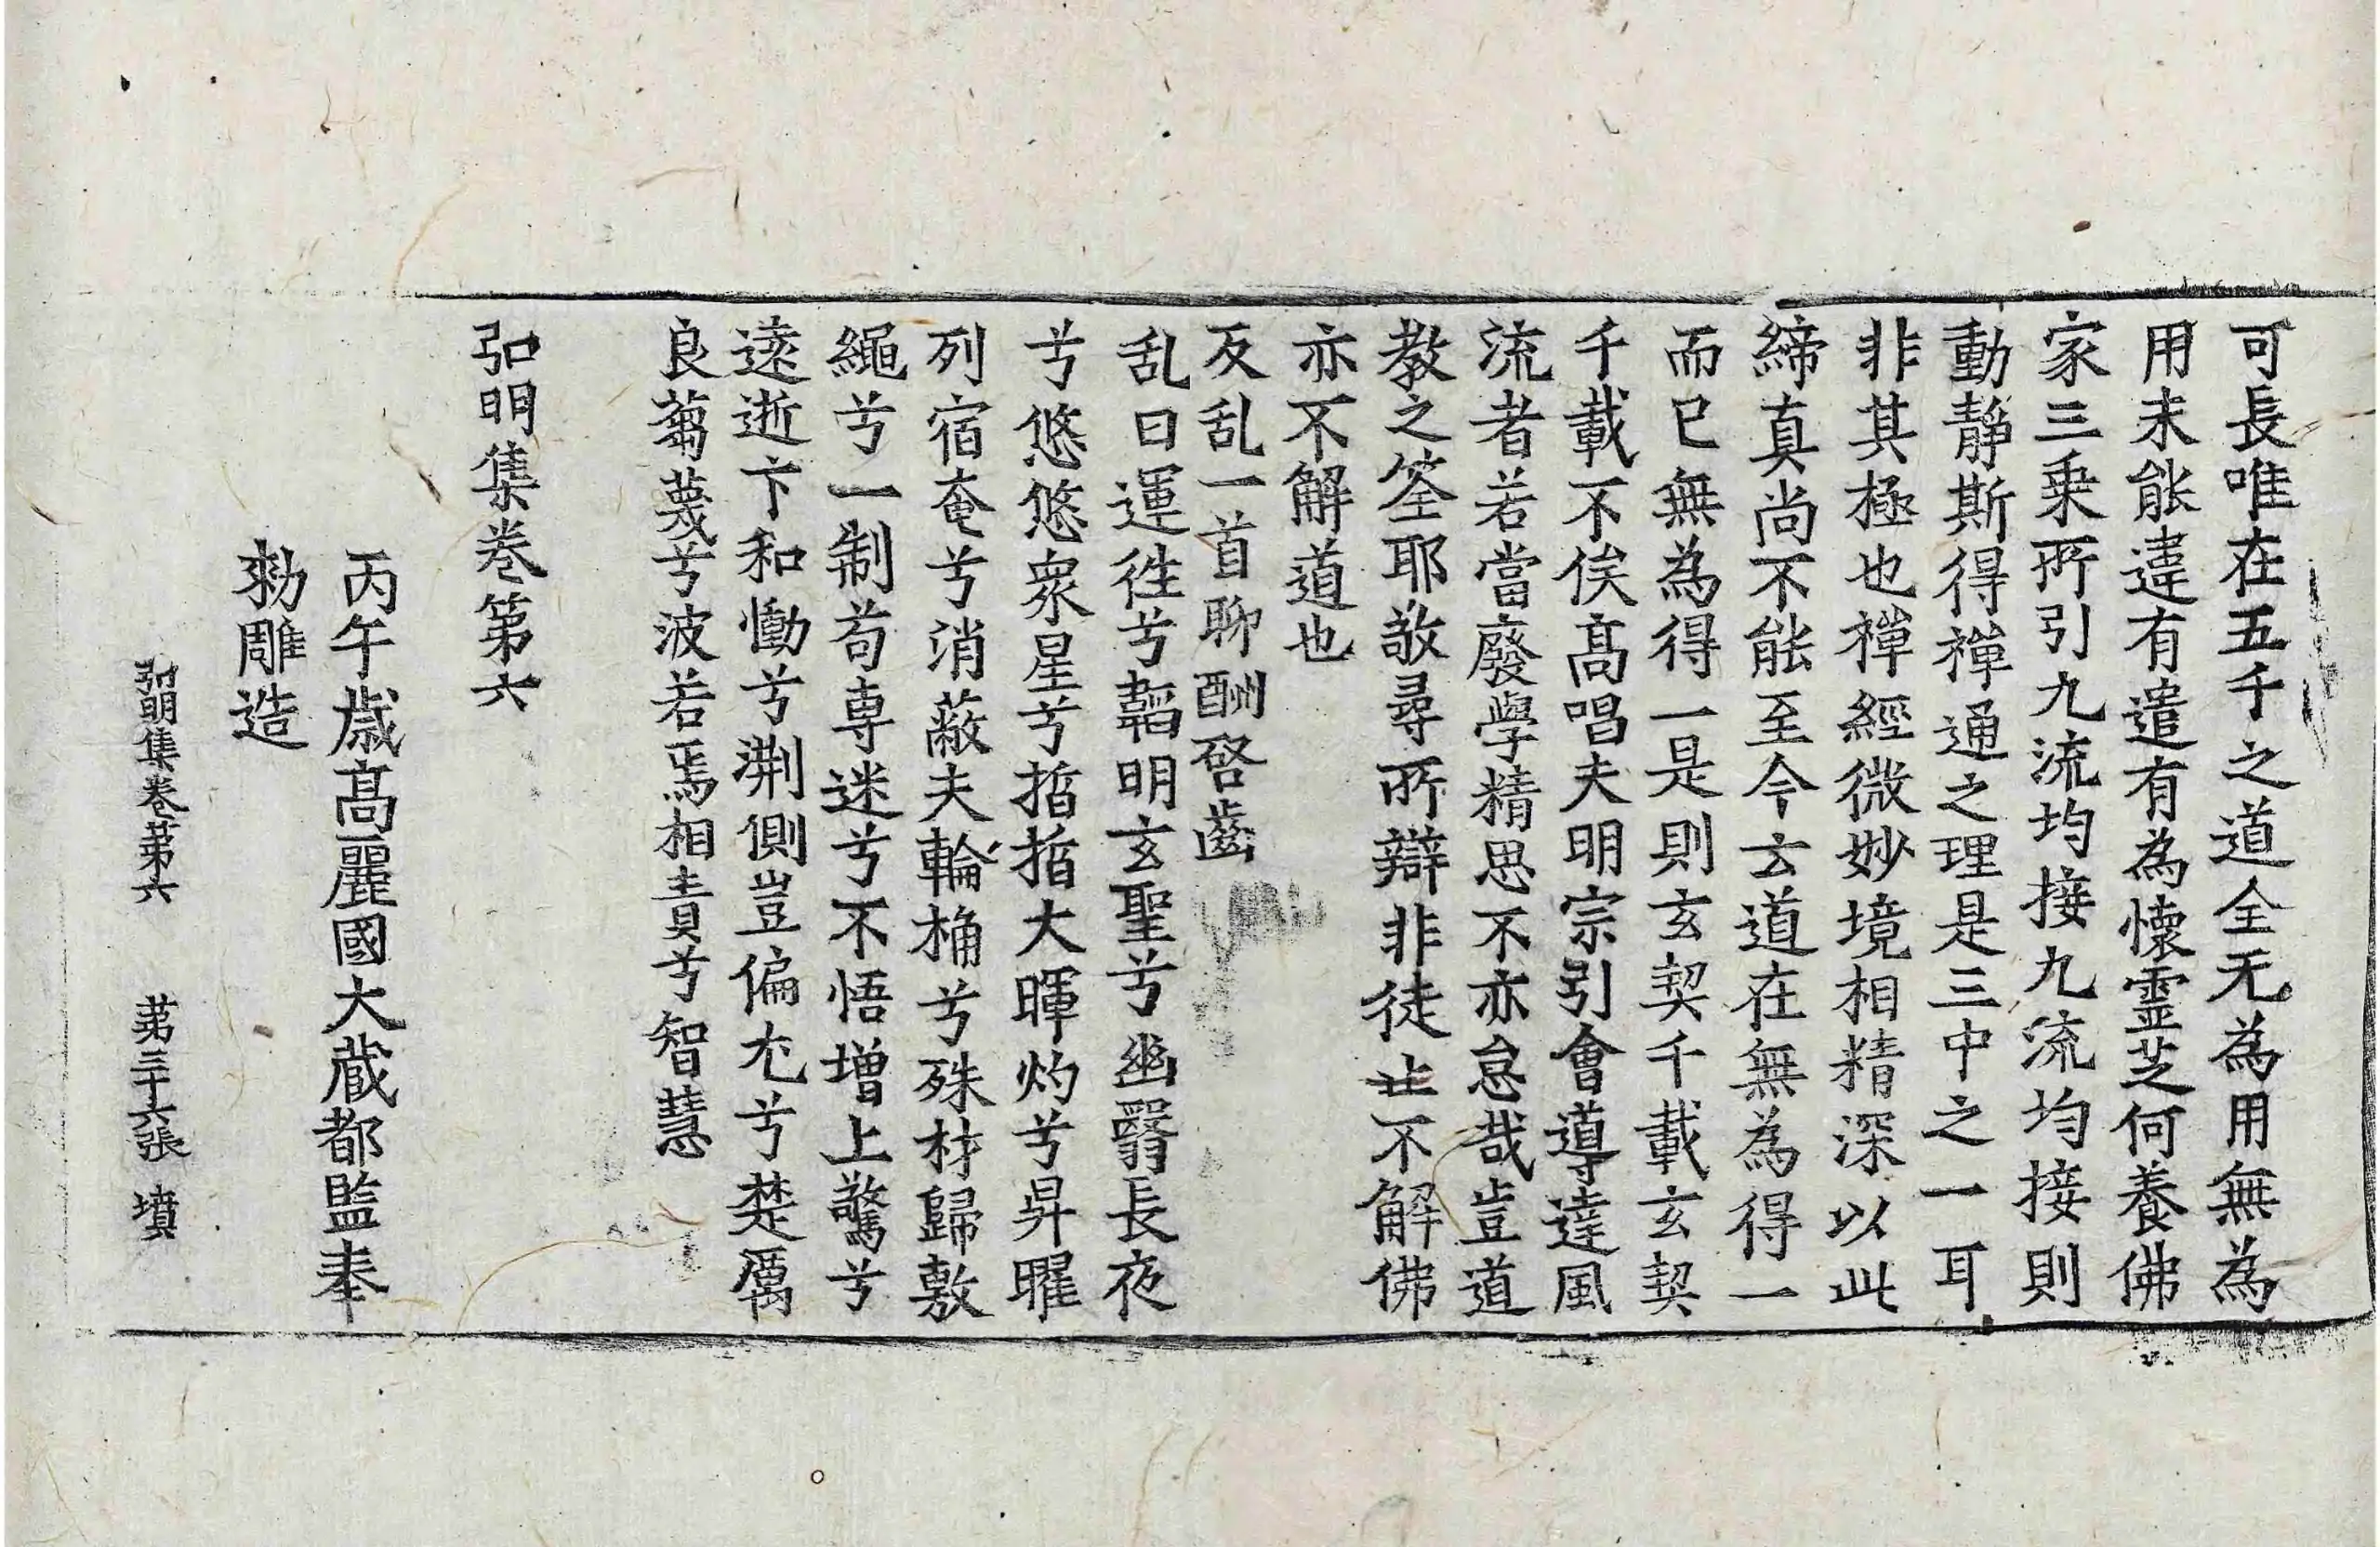 可長唯在五千之道全无為用無為
用未能違有遣有為懷靈芝何養佛
家三乗所引九流均接九流均接則
動靜斯得禪通之理是三中之一耳
非其極也禪經微妙境相精深以此
締真尚不能至今云道在無為得一
而已無為得一是則玄契千載玄契
千載不俟髙唱夫明宗引會導達風
流者若當廢學精思不亦怠哉豈道
教之筌耶敬尋所辯非徒止不解佛
亦不解道也
反乱一首聊酬啓齒
乱曰運徃兮韜明玄聖兮幽翳長夜
兮悠悠衆星兮晢晢大暉灼兮昇曜
列宿奄兮消蔽夫輪桷兮殊材歸敷
繩兮一制苟専迷兮不悟増上驚兮
遠逝卞和慟兮荆側豈偏尤兮楚厲
良蒭蔑兮波若焉相責兮智慧
弘明集卷第六
丙午歲髙麗國大蔵都監奉
勑雕造
弘明集卷第六 第三十六張 墳